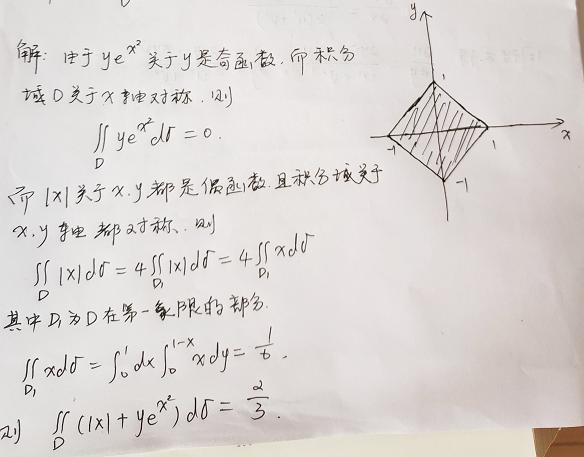 解: 由于 yeˣ² 关于y是奇函数, 而积分
域D关于x轴对称, 则
∬_D yeˣ²dσ = 0.
而 |x| 关于x.y都是偶函数,且积分域关于
x.y轴都对称, 则
∬_D |x|dσ = 4∬_D₁ |x|dσ = 4∬_D₁ xdσ
其中D₁为D在第一象限的部分.
∬_D₁ xdσ = ∫₀¹dx∫₀^(1-x) xdy = 1/6.
则 ∬_D (|x| + yeˣ²) dσ = 2/3.
y
1
-1
1
x
-1